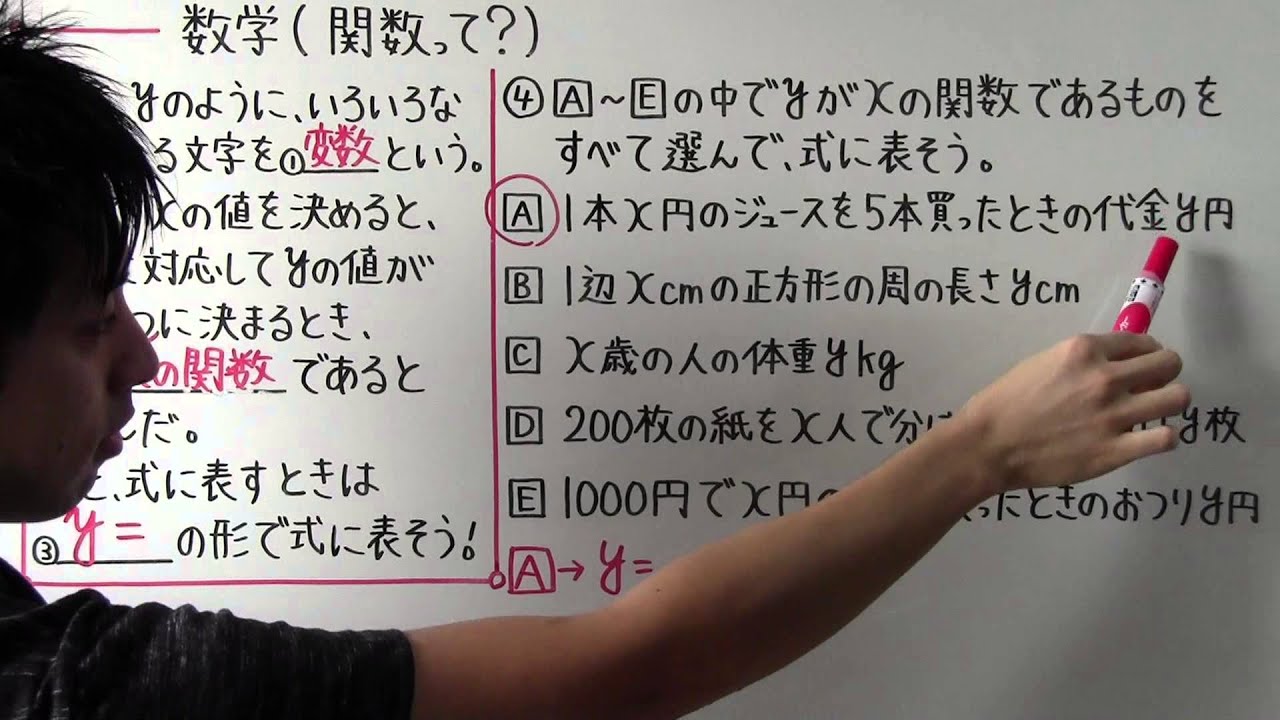 数学(関数って?)
yのように、いろいろな
る文字を①変数という。
xの値を決めると、
対応してyの値が
つに決まるとき、
の関数であると
だ。
、式に表すときは
③y=の形で式に表そう!
④A~Eの中でyがxの関数であるものを
すべて選んで、式に表そう。
A 1本x円のジュースを5本買ったときの代金y円
B 1辺xcmの正方形の周の長さycm
C x歳の人の体重ykg
D 200枚の紙をx人で分 y枚
E 1000円でx円の ったときのおつりy円
A→y=